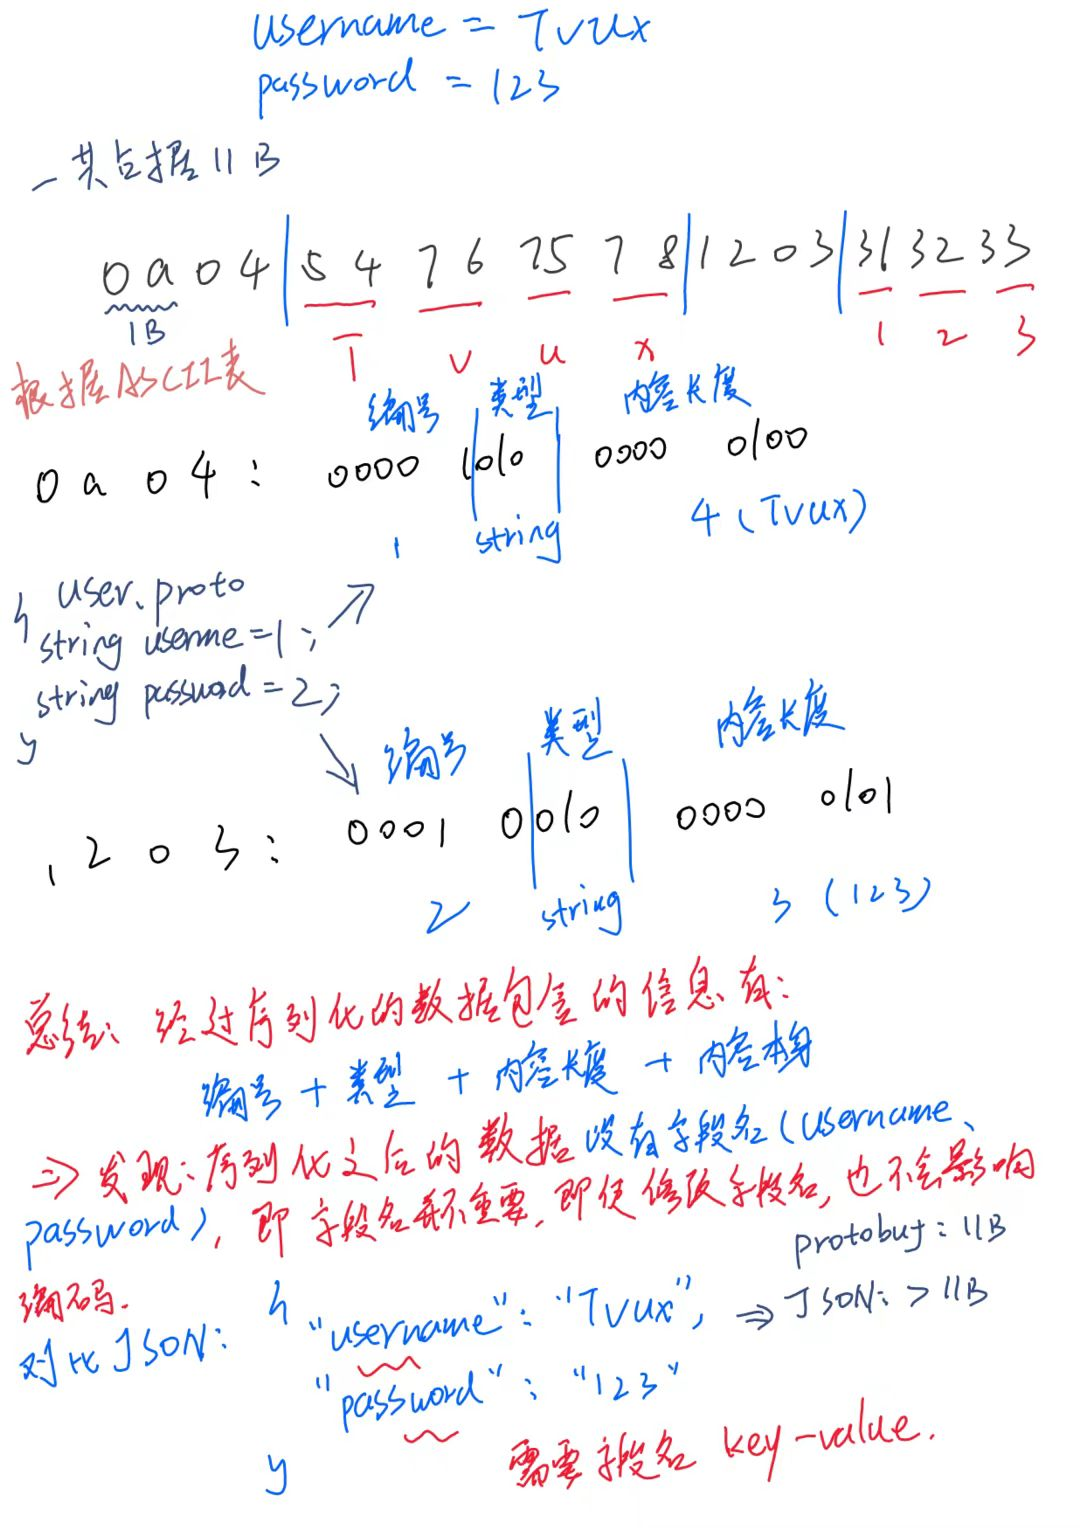 username = Tvux
password = 123
一共占据11B
0a04|54 76 75 78|1203|31 32 33
1B
T v u x 1 2 3
根据ASCII表
编号 类型 内容长度
0a04: 0000 1010 0000 0100
1 string 4 (Tvux)
user.proto
{
string userme=1;
string password=2;
}
编号 类型 内容长度
1203: 0001 0010 0000 0101
2 string 3 (123)
总结: 经过序列化的数据包含的信息有:
编号 + 类型 + 内容长度 + 内容本身
=> 发现: 序列化之后的数据没有字段名(username、
password), 即字段名并不重要, 即使修改字段名, 也不会影响
编码.
protobuf: 11B
对比JSON: { "username": "Tvux", => JSON: > 11B
"password": "123"
}
需要字段名 key-value.